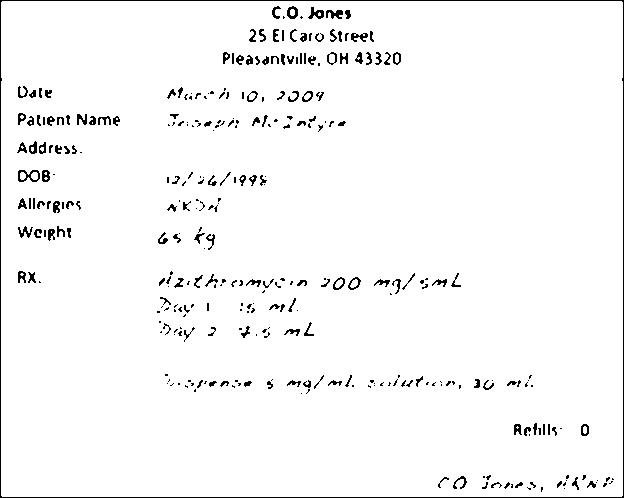 C.O. Jones
25 El Caro Street
Pleasantville, OH 43320
Date March 10, 2009
Patient Name Joseph McIntyre
Address:
DOB: 12/26/1998
Allergies NKDA
Weight 65 kg
RX. Azithromycin 200 mg/5mL
Day 1 15 mL
Day 2 7.5 mL
Dispense 5 mg/mL solution, 30 mL
Refills: 0
CO Jones, ARNP